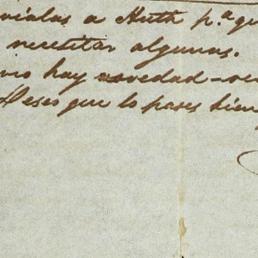 vialas a Huth p.a qu
necesitar algunas.
no hay novedad
Deseo que lo pases bien